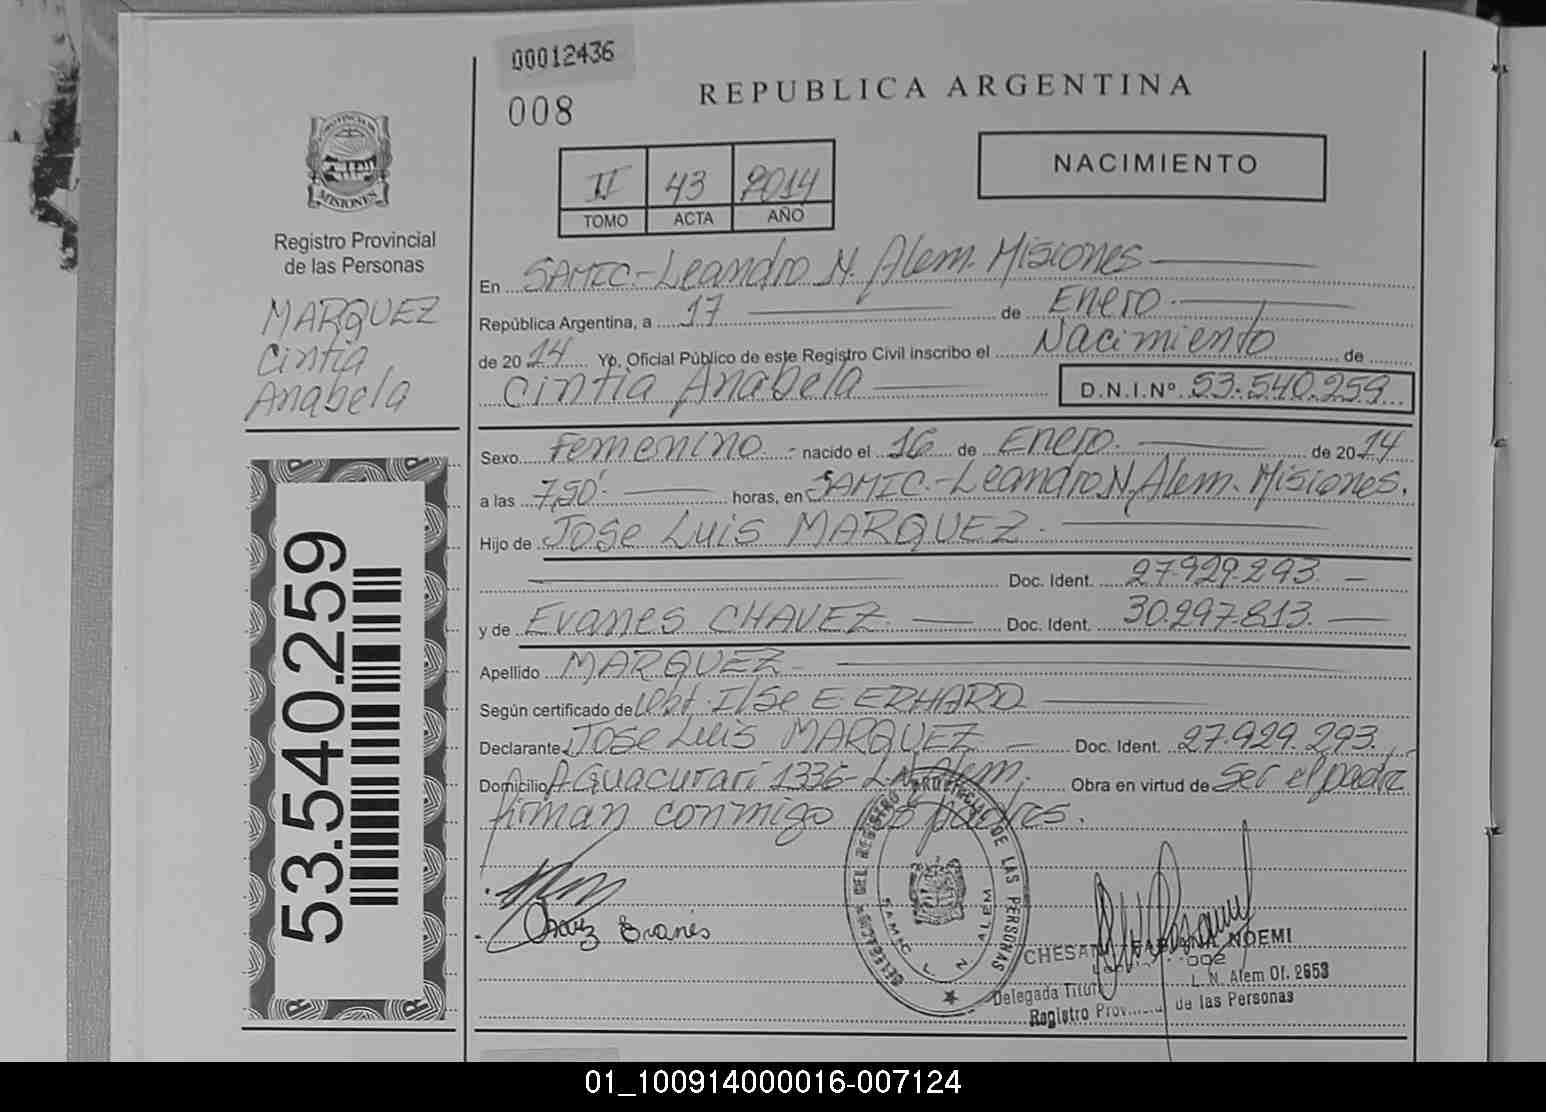 00012436
008
REPUBLICA ARGENTINA
NACIMIENTO
II 43 2014
TOMO ACTA AÑO
PROVINCIA DE
MISIONES
Registro Provincial
de las Personas
MARQUEZ
Cintia
Anabela
53.540.259
En SAMIC.-Leandro N. Alem. Misiones
República Argentina, a 17 de Enero
de 2014. Yo, Oficial Público de este Registro Civil inscribo el Nacimiento de
Cintia Anabela D.N.I.Nº 53.540.259
Sexo Femenino.- nacido el 16 de Enero. de 2014
a las 7,50'. horas, en SAMIC.-Leandro N. Alem. Misiones.
Hijo de Jose Luis MARQUEZ.
Doc. Ident. 27.929.293
y de Evanes CHAVEZ. Doc. Ident. 30.297.813.
Apellido MARQUEZ.
Según certificado de Obst. Ilse E. ERHARD
Declarante Jose Luis MARQUEZ Doc. Ident. 27.929.293.
Domicilio A. Guacurarí 1336- L.N. Alem. Obra en virtud de Ser el padre
firman conmigo los padres.
Chavez Evanés
DELEGACION DEL REGISTRO PROVINCIAL DE LAS PERSONAS
SAMIC L. N. ALEM
FABIANA NOEMI
L. N. Alem Of. 2653
Delegada Titular
Registro Provincial de las Personas
01_100914000016-007124